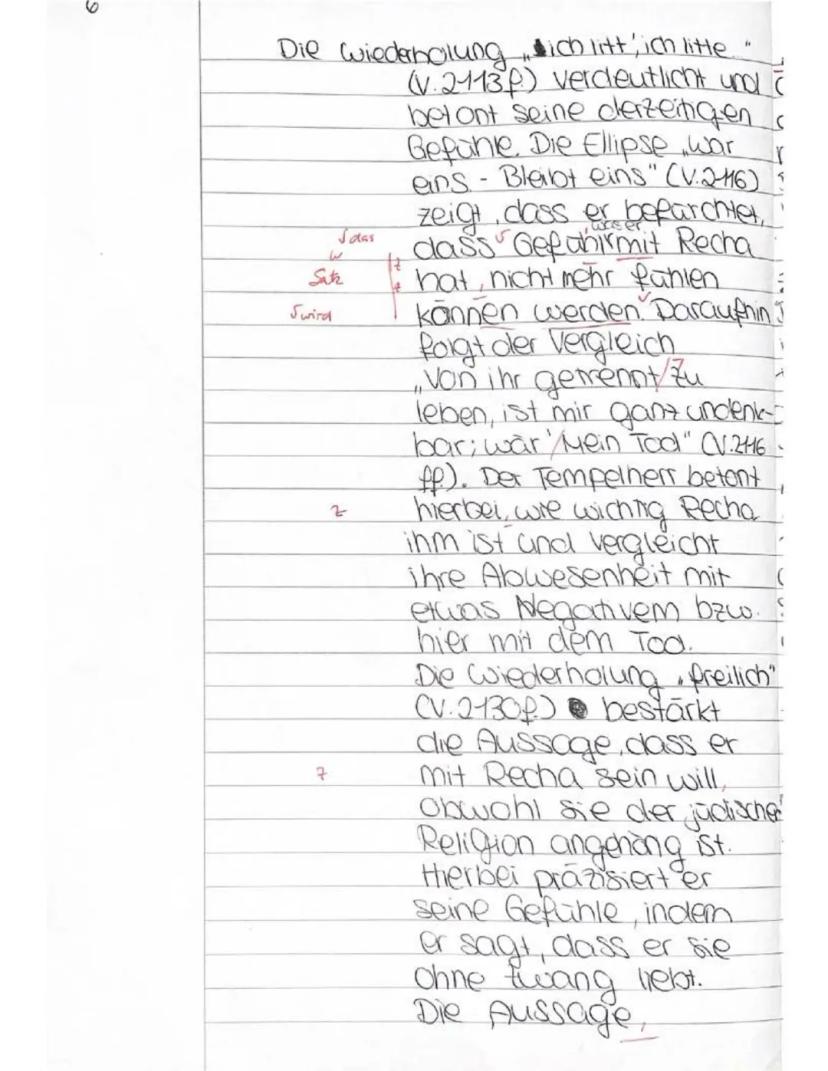 6
Die Wiederholung „ich litt', ich litte"
(V. 2113f.) verdeutlicht und
betont seine derzeitigen
Gefühle. Die Ellipse „war
eins - Bleibt eins" (V. 2116)
zeigt, dass er befürchtet,
was er
√das
dass √ Gefühl mit Recha
w
Satz
hat, nicht mehr fühlen
√wird
können werden. √ Daraufhin
folgt der Vergleich
„Von ihr getrennt / Zu
leben, ist mir ganz undenk-
bar; wär' / Mein Tod" (V. 2116
ff.). Der Tempelherr betont
z
hierbei, wie wichtig Recha
ihm ist und vergleicht
ihre Abwesenheit mit
etwas Negativem bzw.
hier mit dem Tod.
Die Wiederholung „freilich"
(V. 2130f.) bestärkt
die Aussage, dass er
z
mit Recha sein will,
obwohl sie der jüdischen
Religion angehörig ist.
Hierbei präzisiert er
seine Gefühle, indem
er sagt, dass er sie
ohne Zwang liebt.
Die Aussage,